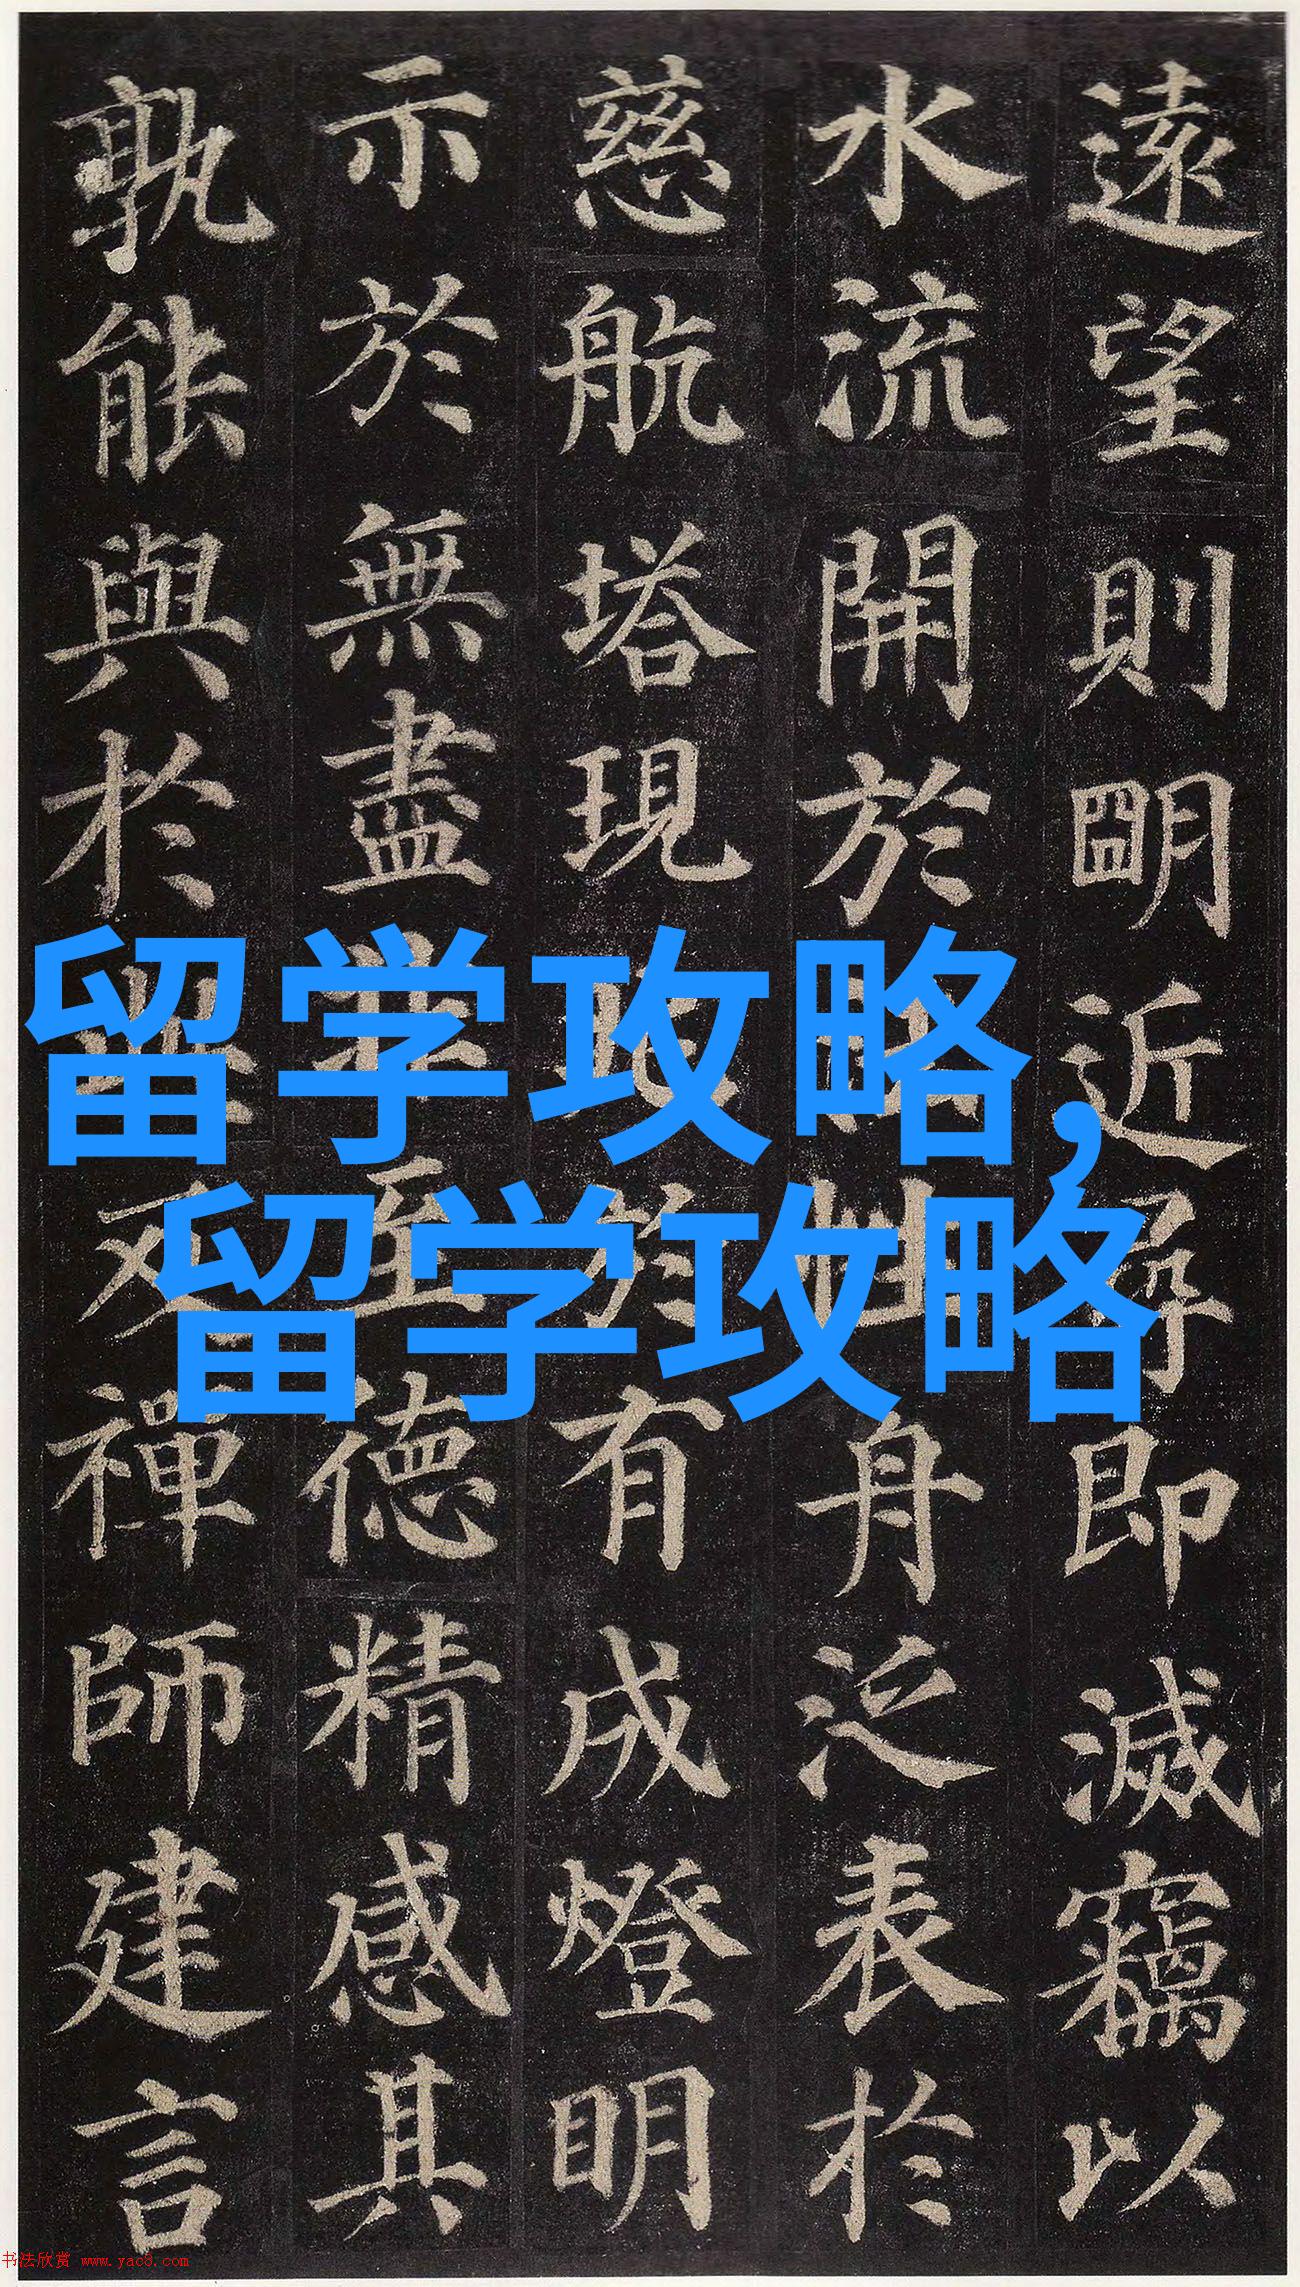 遠望則朙近尋即滅竊以
水流開於舟泛表於
慈航塔現於有成燈明
示於無盡至德精感其
孰能與於禪師建言
留学攻略,
留学攻略
书法欣赏 www.yac8.com